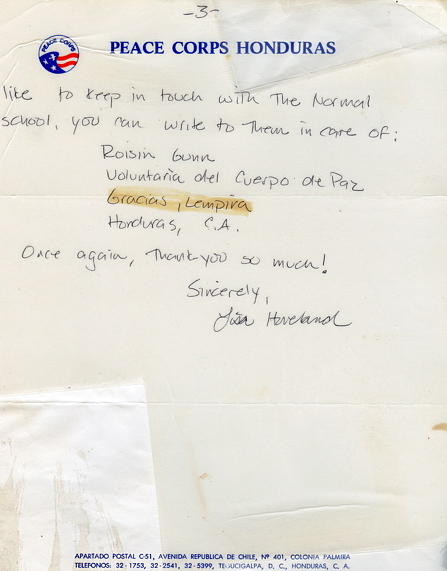 -3-
PEACE CORPS
PEACE CORPS HONDURAS
like to keep in touch with the Normal
school, you can write to them in care of:
Roisin Gunn
Voluntaria del Cuerpo de Paz
Gracias, Lempira
Honduras, C.A.
Once again, thank you so much!
Sincerely,
Lisa Hoveland
APARTADO POSTAL C-51, AVENIDA REPUBLICA DE CHILE, Nº 401, COLONIA PALMIRA
TELEFONOS: 32-1753, 32-2541, 32-5399, TEGUCIGALPA, D. C., HONDURAS, C. A.